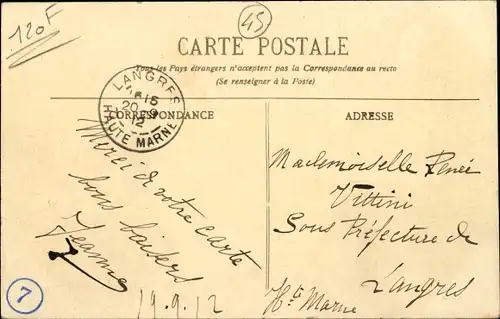 120F
45
CARTE POSTALE
Tous les Pays étrangers n'acceptent pas la Correspondance au recto
(Se renseigner à la Poste)
LANGRES
15
20-9
12
HAUTE MARNE
CORRESPONDANCE
ADRESSE
Merci de votre carte
bons baisers
Jeanne
19.9.12
7
Mademoiselle Renée
Vittini
Sous Préfecture de
Langres
Hte Marne